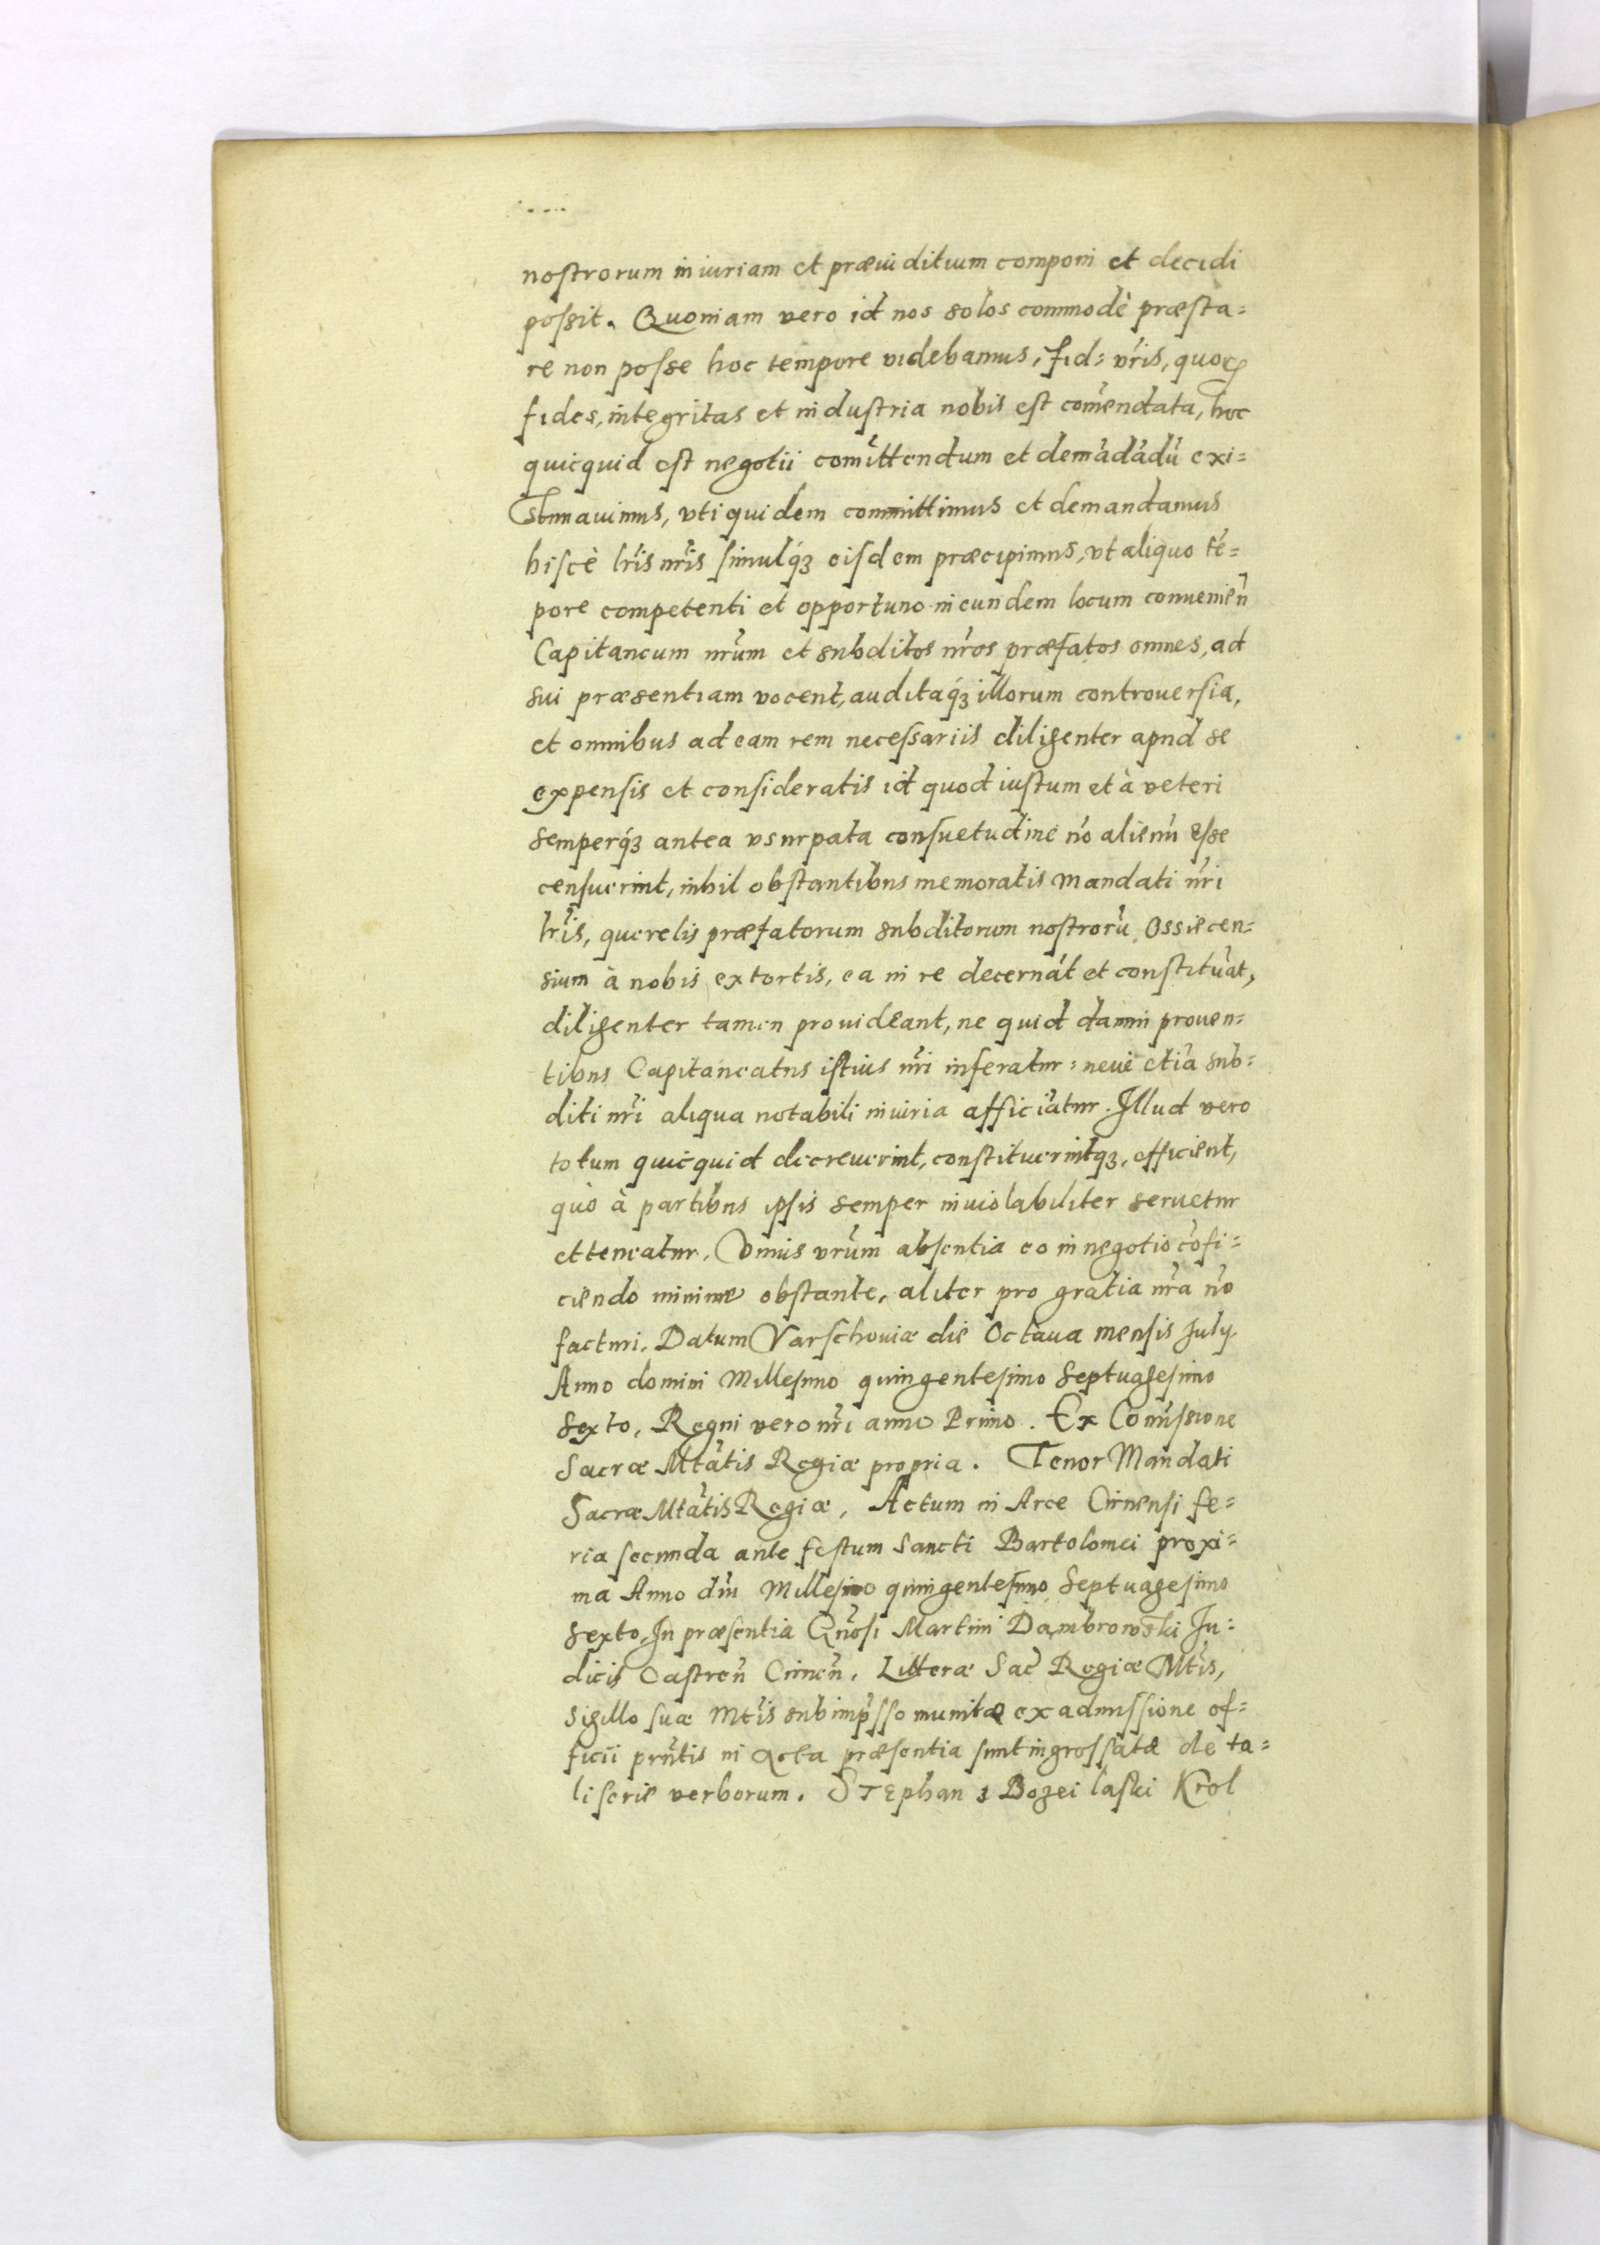 nostrorum iniuriam et præiuditium componi et decidi
possit. Quoniam vero id nos solos commodè præsta=
re non posse hoc tempore videbamus, fid= vr̃is, quoꝝ
fides, integritas et industria nobis est com̃endata, hoc
quicquid est negotii com̃ittendum et demãdãdũ exi=
stimauimus, vti quidem committimus et demandamus
hiscè lr̃is nr̃is simulq́ꝫ eisdem præcipimus, vt aliquo tẽ=
pore competenti et opportuno in eundem locum conuenieñ
Capitaneum nr̃um et subditos nr̃os præfatos omnes, ad
sui præsentiam vocent, auditaq́ꝫ illorum controuersia,
et omnibus ad eam rem necessariis diligenter apud se
expensis et consideratis id quod iustum et à veteri
semperq́ꝫ antea vsurpata consuetudine nõ alienũ esse
censuerint, nihil obstantibus memoratis Mandati nr̃i
lr̃is, querelis præfatorum subditorum nostrorũ Ossiecen=
sium à nobis extortis, ea in re decernãt et constituãt,
diligenter tamen prouideant, ne quid damni prouen=
tibus Capitaneatus istius nr̃i inferatur: neue etiã sub=
diti nr̃i aliqua notabili iniuria afficiãtur. Illud vero
totum quicquid decreuerint, constituerintqꝫ, efficient,
quò à partibus ipsis semper inuiolabiliter seruetur
et teneatur. Vnius vr̃um absentia eo in negotio cõfi=
ciendo minime obstante, aliter pro gratia nr̃a nõ
facturi. Datum Varschouiæ die Octaua mensis July
Anno domini Millesimo quingentesimo Septuagesimo
Sexto, Regni vero nr̃i anno Primo. Ex Com̃issione
Sacræ Mtãtis Regiæ propria. Tenor Mandati
Sacræ Mtãtis Regiæ, Actum in Arce Cirnensi fe=
ria secunda ante festum Sancti Bartolomei proxi=
ma Anno dñi Millesimo quingentesimo Septuagesimo
Sexto, In præsentia Gñosi Martini Dambrowski Iu=
dicis Castreñ Cirneñ. Litteræ Sac̃ Regiæ Mtĩs,
Sigillo suæ Mtĩs subimp̃sso munitæ ex admissione of=
ficii prñtis in Acta præsentia sunt ingrossatæ de ta=
li serie verborum. STEphan z Bozei laski Krol